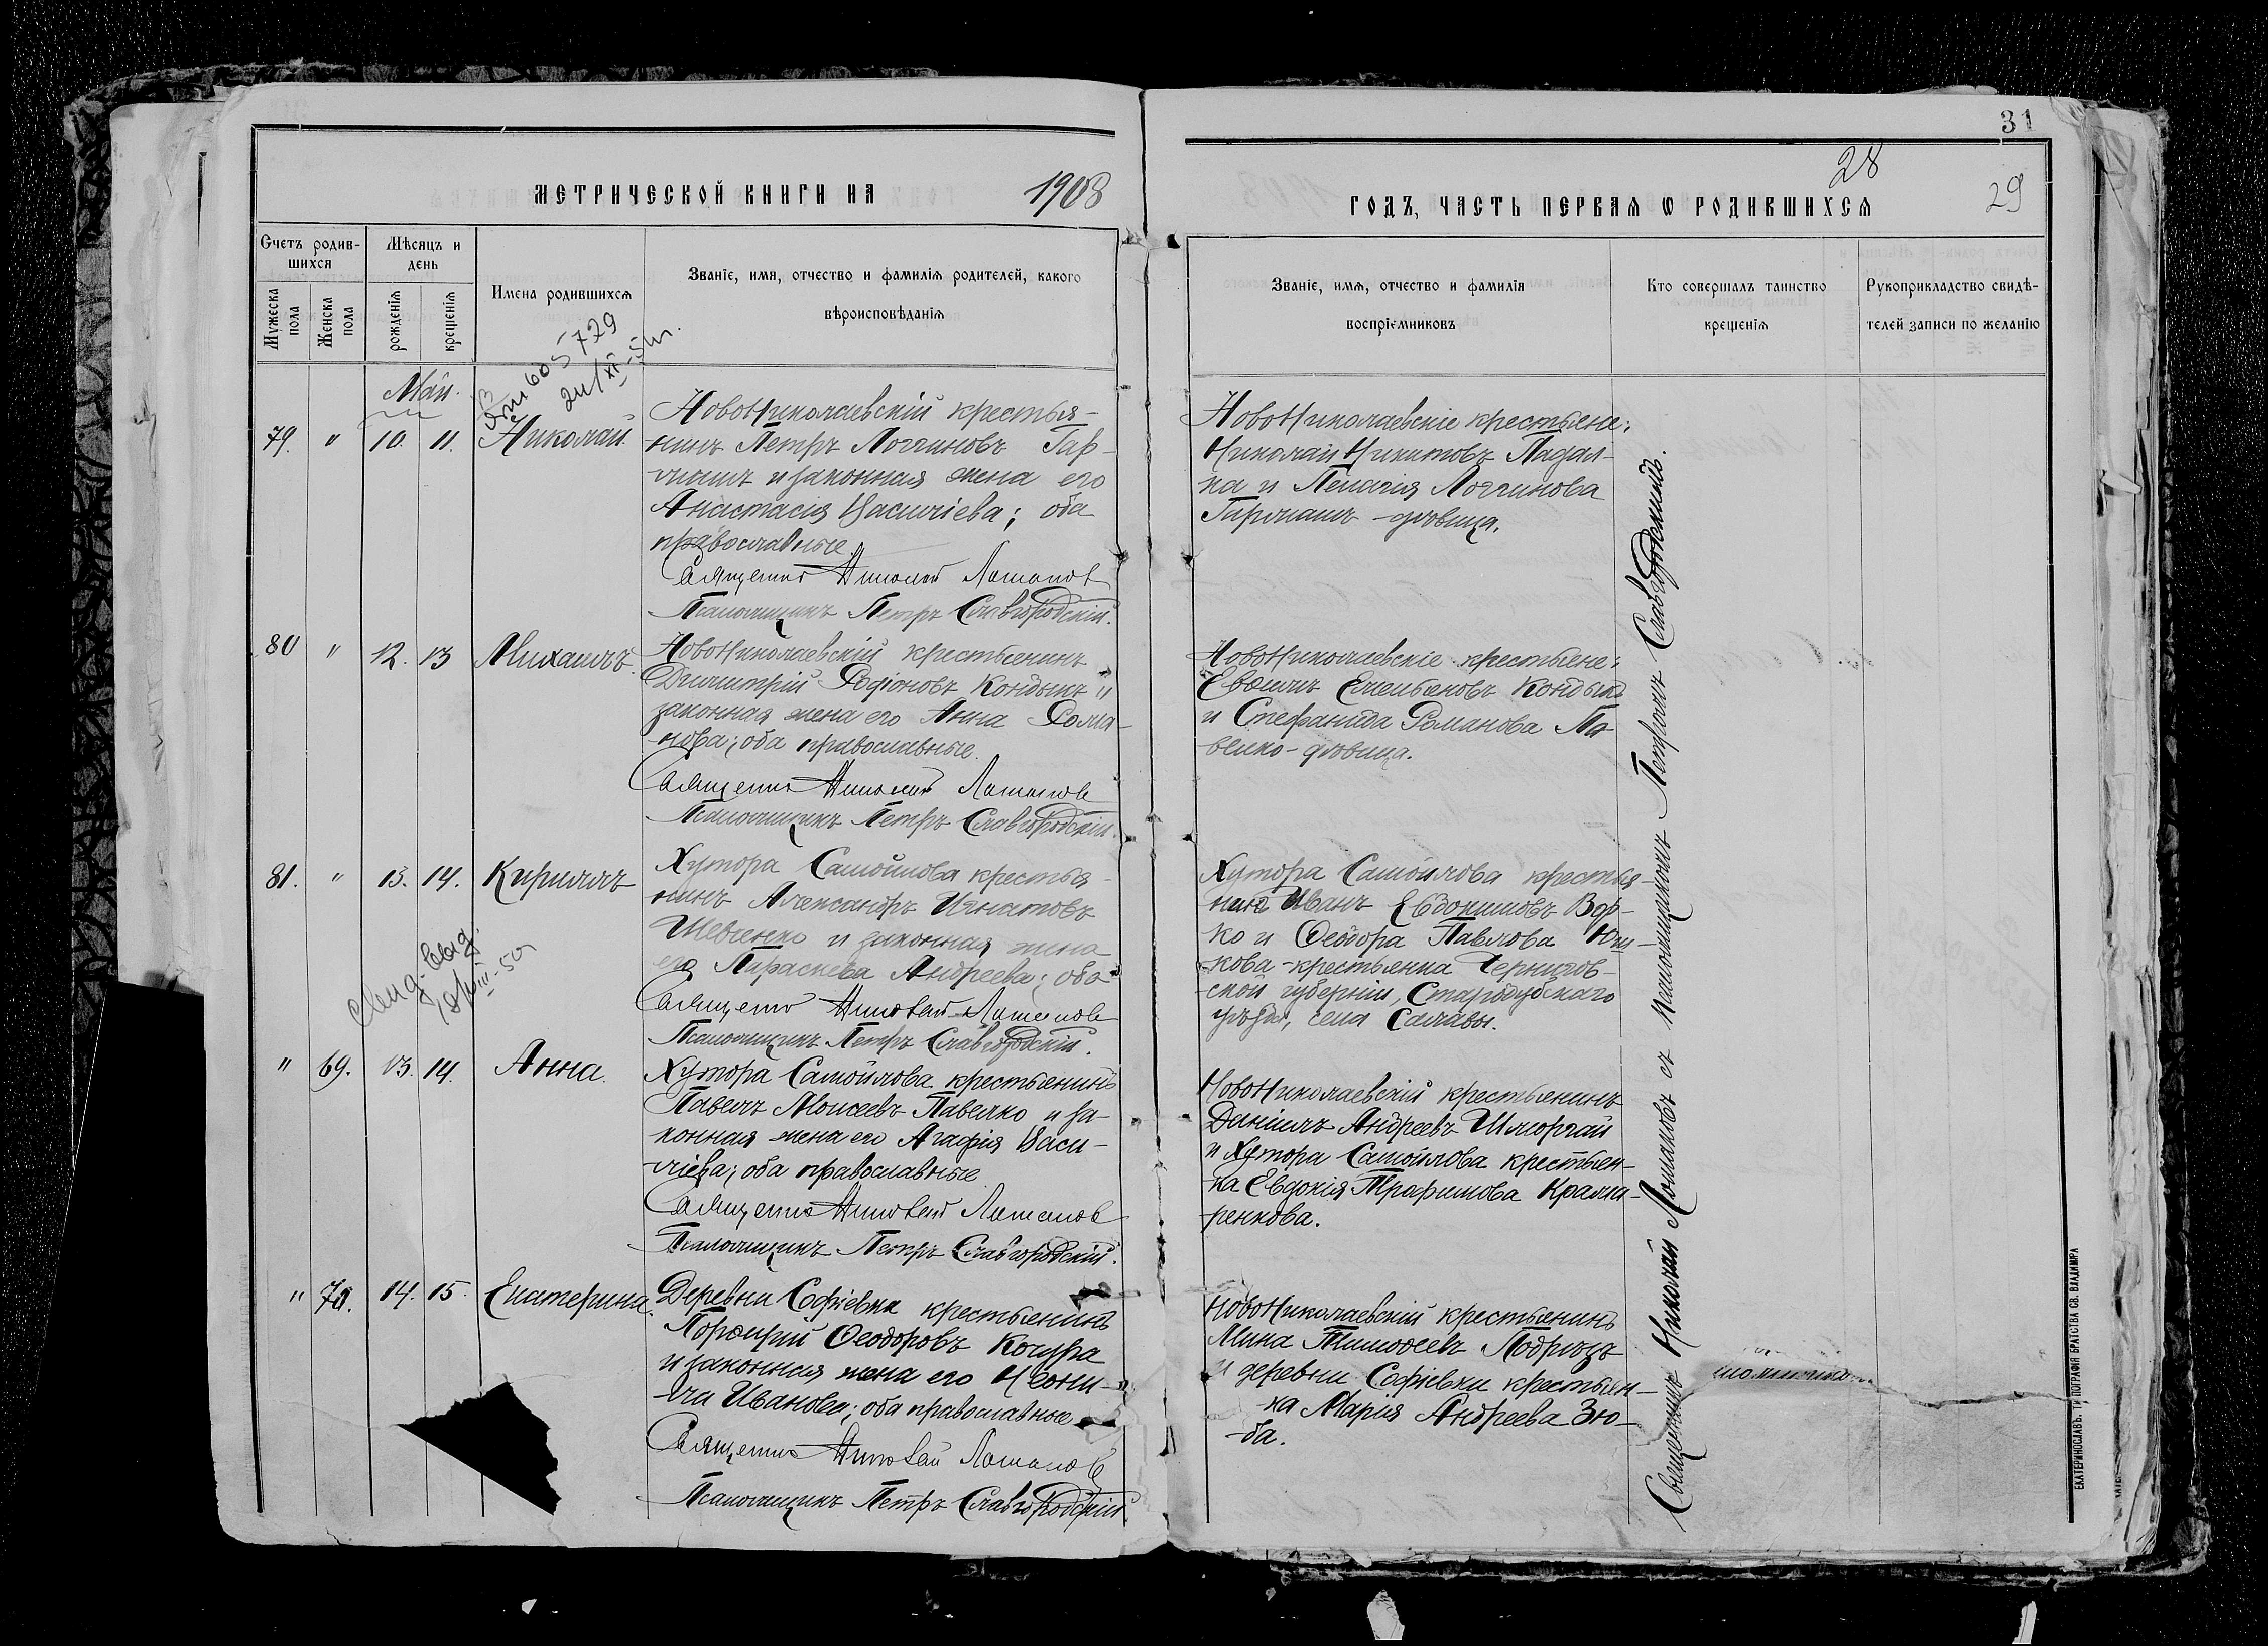 31
28
29
МЕТРИЧЕСКОЙ КНИГИ НА 1908
ГОДЪ, ЧАСТЬ ПЕРВАЯ Ѡ РОДИВШИХСЯ
Счетъ родив-
шихся
Мѣсяцъ и
день
Мужеска
пола
Женска
пола
рожденія
крещенія
Имена родившихся
Званіе, имя, отчество и фамилія родителей, какого
вѣроисповѣданія
Званіе, имя, отчество и фамилія
воспріемниковъ
Кто совершалъ таинство
крещенія
Рукоприкладство свидѣ-
телей записи по желанію
605729
Май.
79. " 10. 11. Николай.
НовоНиколаевскій крестья-
нинъ Петръ Логгиновъ Гар-
и законная жена его
Анастасія Василіева; оба
православные.
Священникъ Николай Ломаковъ
Псаломщикъ Петръ Славгородскій.
НовоНиколаевскіе крестьяне:
Николай Никитовъ Падал-
ка и Пелагія Логгинова
дѣвица.
80 " 12. 13 Михаилъ.
НовоНиколаевскій крестьянинъ
Димитрій Родіоновъ Кондыкъ и
законная жена его Анна Рома-
нова; оба православные.
Священникъ Николай Ломаковъ
Псаломщикъ Петръ Славгородскій.
НовоНиколаевскіе крестьяне:
Евѳимъ Емельяновъ Кондыкъ
и Стефанида Романова Па-
велко - дѣвица.
81. " 13. 14. Кириллъ
Хутора Самойлова крестья-
нинъ Александръ Игнатовъ
Шевченко и законная жена
его Параскева Андреева; оба
Священникъ Николай Ломаковъ
Псаломщикъ Петръ Славгородскій.
Хутора Самойлова крестья-
нинъ Иванъ Евдокимовъ Вор-
ко и Ѳеодора Павлова
кова - крестьянка Чернигов-
ской губерніи, Стародубскаго
уѣзда, села
18/VIII-50
" 69. 13. 14. Анна.
Хутора Самойлова крестьянинъ
Павелъ Моисеевъ Павелко и за-
конная жена его Агафія Васи-
ліева; оба православные.
Священникъ Николай Ломаковъ
Псаломщикъ Петръ Славгородскій.
НовоНиколаевскій крестьянинъ
Даніилъ Андреевъ Шморгай
и Хутора Самойлова крестьян-
ка Евдокія Трафимова Крама-
ренкова.
" 70. 14. 15. Екатерина.
Деревни Софіевки крестьянинъ
Порфирій Ѳеодоровъ Кочура
и законная жена его Неони-
ла Иванова; оба православные
Священникъ Николай Ломаковъ
Псаломщикъ Петръ Славгородскій.
НовоНиколаевскій крестьянинъ
Мина Тимоѳеевъ
и деревни Софіевки крестьян-
ка Марія Андреева Зю-
ба.
Священникъ Николай Ломаковъ съ псаломщикомъ Петромъ Славгородскимъ.
ЕКАТЕРИНОСЛАВЪ. ТИПОГРАФІЯ БРАТСТВА СВ. ВЛАДИМІРА